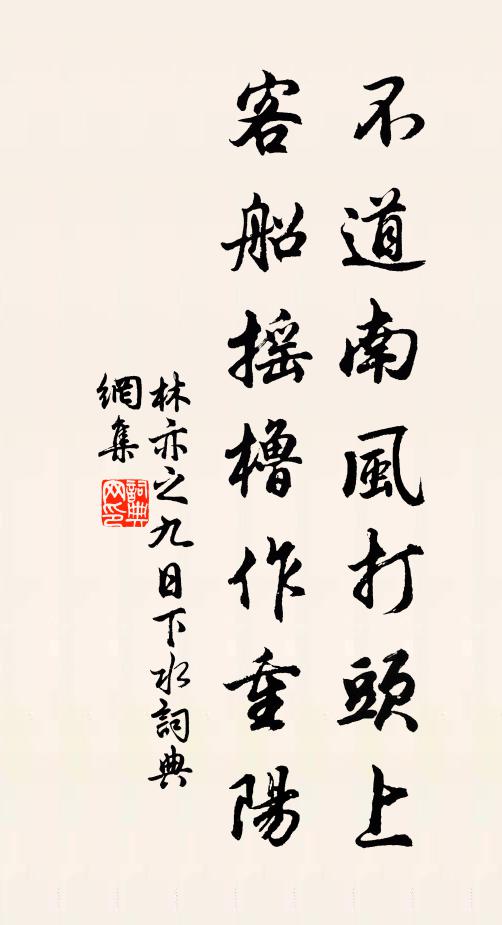 不道南風打頭上
客船摇櫓作重陽
林亦之九日下水詞典
網集
詞典
網印